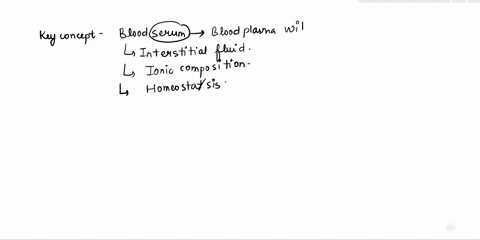 Key concept - Blood serum → Blood plasma wil
↳ Interstitial fluid.
↳ Ionic composition.
↳ Homeostasis.